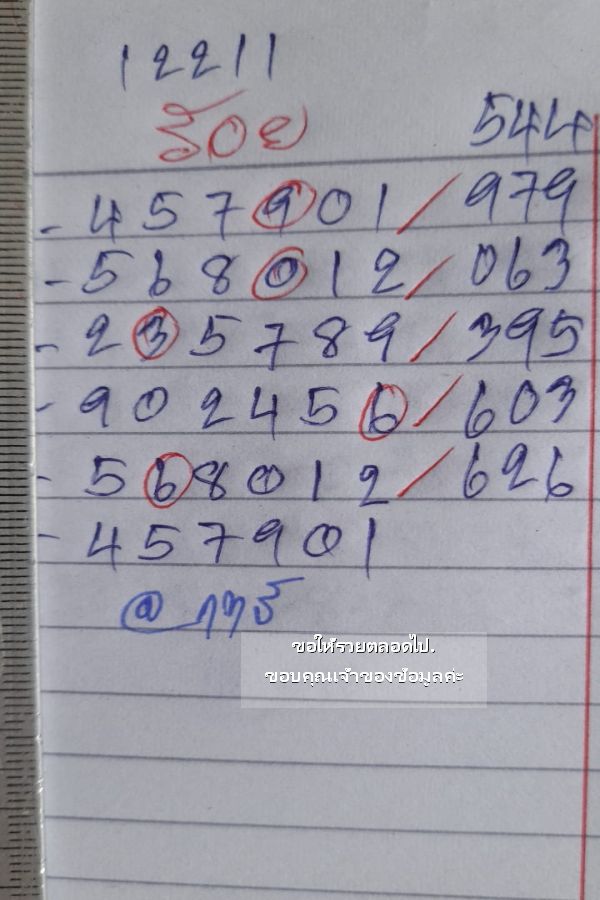 12211
ร้อย 544
- 457901 / 979
- 568012 / 063
- 235789 / 395
- 902456 / 603
- 568012 / 626
- 457901
ขอให้รวยตลอดไป.
ขอบคุณเจ้าของข้อมูลค่ะ